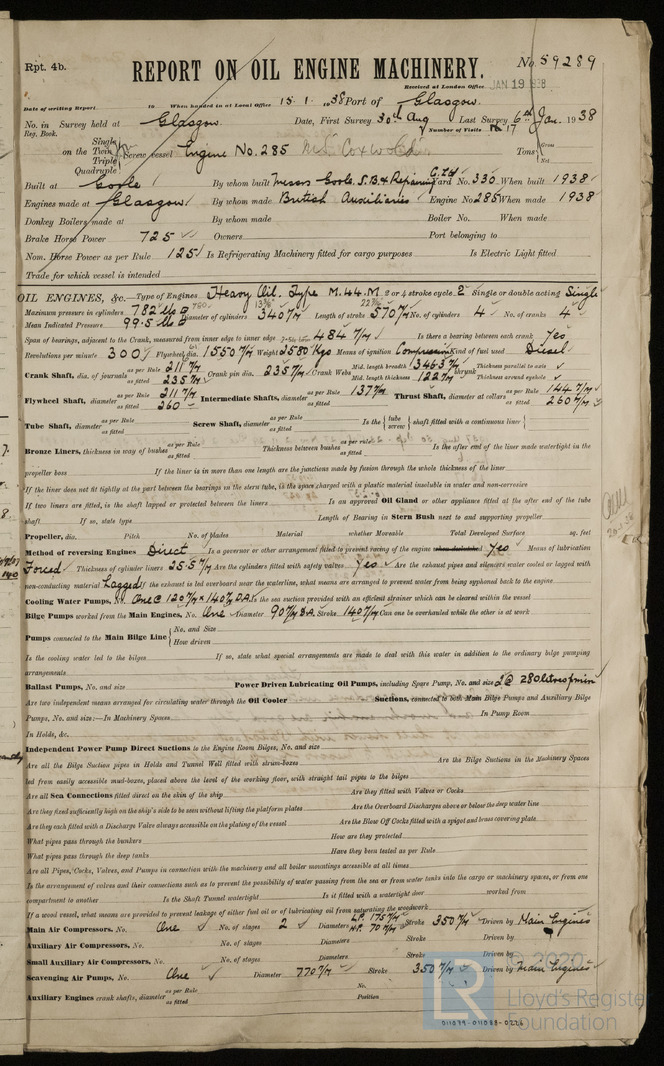 Rpt. 4b.
REPORT ON OIL ENGINE MACHINERY.
No. 59289
Received at London Office JAN 19 1938
Date of writing Report 19 When handed in at Local Office 15. 1. 1938 Port of Glasgow.
No. in Survey held at Glasgow. Date, First Survey 30th Aug Last Survey 6th Jan. 1938
Reg. Book. Number of Visits 17
Single
on the Twin Screw vessel Engine No. 285 Tons Gross Net
Triple
Quadruple
Built at Goole By whom built Messrs Goole S.B. & Repairing C. Ltd Yard No. 330 When built 1938
Engines made at Glasgow By whom made British Auxiliaries Engine No. 285 When made 1938
Donkey Boilers made at By whom made Boiler No. When made
Brake Horse Power 725 Owners Port belonging to
Nom. Horse Power as per Rule 125 Is Refrigerating Machinery fitted for cargo purposes Is Electric Light fitted
Trade for which vessel is intended
OIL ENGINES, &c. Type of Engines Heavy Oil. Type M.44.M. 2 or 4 stroke cycle 2 Single or double acting Single
Maximum pressure in cylinders 782 Diameter of cylinders 340 m/m Length of stroke 570 m/m No. of cylinders 4 No. of cranks 4
Mean Indicated Pressure 99.5
Span of bearings, adjacent to the Crank, measured from inner edge to inner edge 484 m/m Is there a bearing between each crank Yes
Revolutions per minute 300 Flywheel dia. 1550 m/m Weight 2580 Kgs Means of ignition Compression Kind of fuel used Diesel
Crank Shaft, dia. of journals as per Rule 211 m/m as fitted 235 m/m Crank pin dia. 235 m/m Crank Webs Mid. length breadth 346.5 m/m Mid. length thickness 122 m/m shrunk Thickness parallel to axis Thickness around eyehole
Flywheel Shaft, diameter as per Rule 211 m/m as fitted 260 Intermediate Shafts, diameter as per Rule 137 m/m as fitted Thrust Shaft, diameter at collars as per Rule 144 m/m as fitted 260 m/m
Tube Shaft, diameter as per Rule as fitted Screw Shaft, diameter as per Rule as fitted Is the tube screw shaft fitted with a continuous liner
Bronze Liners, thickness in way of bushes as per Rule as fitted Thickness between bushes as per rule as fitted Is the after end of the liner made watertight in the
propeller boss If the liner is in more than one length are the junctions made by fusion through the whole thickness of the liner
If the liner does not fit tightly at the part between the bearings in the stern tube, is the space charged with a plastic material insoluble in water and non-corrosive
If two liners are fitted, is the shaft lapped or protected between the liners Is an approved Oil Gland or other appliance fitted at the after end of the tube
shaft If so, state type Length of Bearing in Stern Bush next to and supporting propeller
Propeller, dia. Pitch No. of blades Material whether Moveable Total Developed Surface sq. feet
Method of reversing Engines Direct Is a governor or other arrangement fitted to prevent racing of the engine when declutched Yes Means of lubrication
Forced Thickness of cylinder liners 25.5 m/m Are the cylinders fitted with safety valves Yes Are the exhaust pipes and silencers water cooled or lagged with
non-conducting material Lagged If the exhaust is led overboard near the waterline, what means are arranged to prevent water from being syphoned back to the engine
Cooling Water Pumps, No. One @ 120 m/m x 140 m/m D.A. Is the sea suction provided with an efficient strainer which can be cleared within the vessel
Bilge Pumps worked from the Main Engines, No. One Diameter 90 m/m S.A. Stroke 140 m/m Can one be overhauled while the other is at work
Pumps connected to the Main Bilge Line No. and Size
How driven
Is the cooling water led to the bilges If so, state what special arrangements are made to deal with this water in addition to the ordinary bilge pumping
arrangements
Ballast Pumps, No. and size Power Driven Lubricating Oil Pumps, including Spare Pump, No. and size 2 @ 280 litres p min
Are two independent means arranged for circulating water through the Oil Cooler Suctions, connected to both Main Bilge Pumps and Auxiliary Bilge
Pumps, No. and size:—In Machinery Spaces In Pump Room
In Holds, &c.
Independent Power Pump Direct Suctions to the Engine Room Bilges, No. and size
Are all the Bilge Suction pipes in Holds and Tunnel Well fitted with strum-boxes Are the Bilge Suctions in the Machinery Spaces
led from easily accessible mud-boxes, placed above the level of the working floor, with straight tail pipes to the bilges
Are all Sea Connections fitted direct on the skin of the ship Are they fitted with Valves or Cocks
Are they fixed sufficiently high on the ship's side to be seen without lifting the platform plates Are the Overboard Discharges above or below the deep water line
Are they each fitted with a Discharge Valve always accessible on the plating of the vessel Are the Blow Off Cocks fitted with a spigot and brass covering plate
What pipes pass through the bunkers How are they protected
What pipes pass through the deep tanks Have they been tested as per Rule
Are all Pipes, Cocks, Valves, and Pumps in connection with the machinery and all boiler mountings accessible at all times
Is the arrangement of valves and their connections such as to prevent the possibility of water passing from the sea or from water tanks into the cargo or machinery spaces, or from one
compartment to another Is the Shaft Tunnel watertight Is it fitted with a watertight door worked from
If a wood vessel, what means are provided to prevent leakage of either fuel oil or of lubricating oil from saturating the woodwork
Main Air Compressors, No. One No. of stages 2 Diameters L.P. 175 m/m H.P. 70 m/m Stroke 350 m/m Driven by Main Engines
Auxiliary Air Compressors, No. No. of stages Diameters Stroke Driven by
Small Auxiliary Air Compressors, No. No. of stages Diameters Stroke Driven by
Scavenging Air Pumps, No. One Diameter 770 m/m Stroke 350 m/m Driven by Main Engines
Auxiliary Engines crank shafts, diameter as per Rule as fitted No. Position
© 2020
LR Lloyd's Register
Foundation
011079-011088-0226